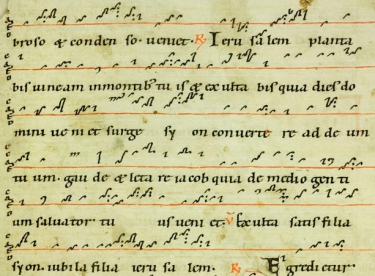 broso & conden so. veniet. R. Ieru salem planta
bis vineam inmontib; tu is & exulta bis quia dies do
mini veniet surge sy on converte re ad de um
tu um. gau de & leta re iacob quia de medio gen ti
um salvator tu us veni et. V. Exulta satis filia
syon. iubila filia ieru sa lem. R. Egredietur